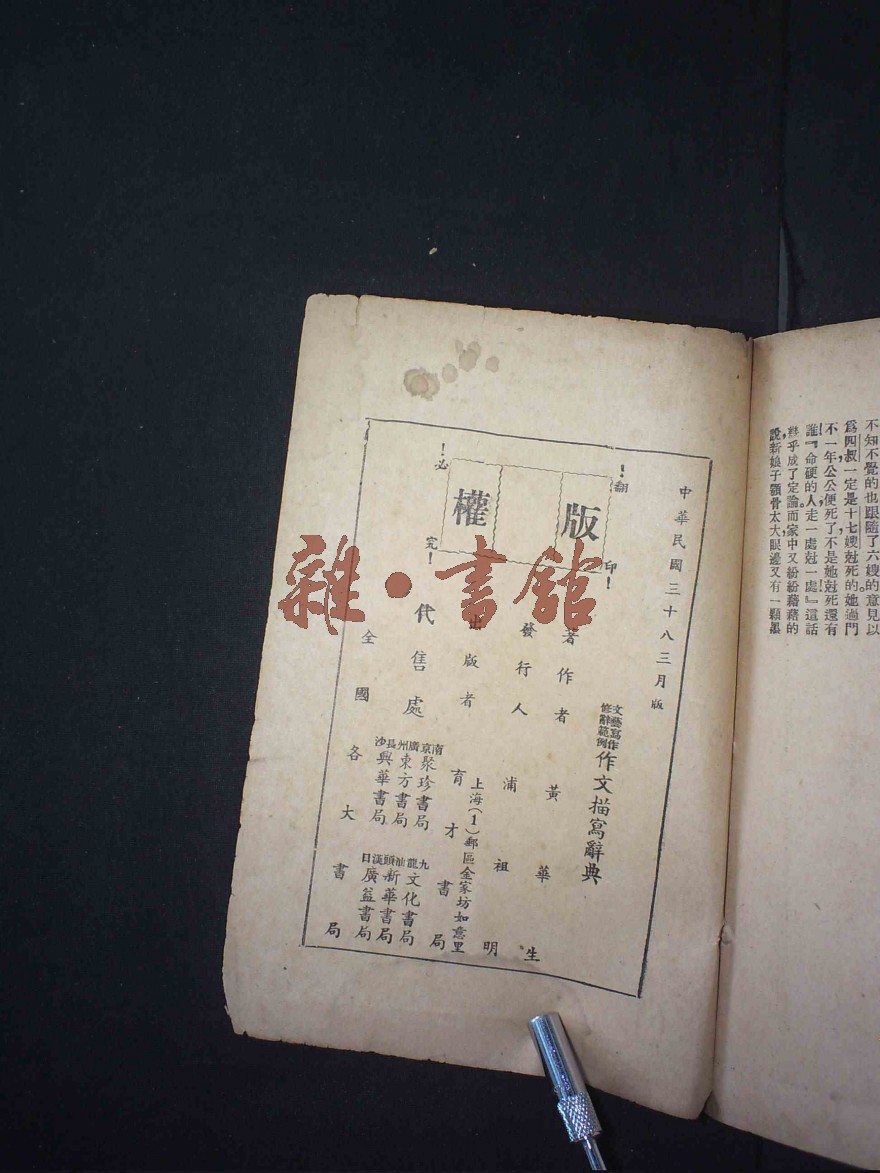 不知不覺的也跟隨了六嫂的意見以
爲四叔一定是十七嫂尅死的她過門
不一年公公便死了不是她尅死還有
誰『命硬的人走一處尅一處！』這話
幾乎成了定論而家中又紛紛藉藉的
說新娘子顴骨太大眼邊又有一顆墨
中華民國三十八三月版
版權
！翻印！
！必究！
文藝寫作
修辭範例
作文描寫辭典
著作者 黃華生
發行人 浦祖明
出版者 育才書局
上海（1）郵區金家坊如意里
代售處
南京聚珍書局
廣州東方書局
長沙興華書局
九龍文化書局
汕頭新華書局
漢口廣益書局
全國各大書局
雜·書館